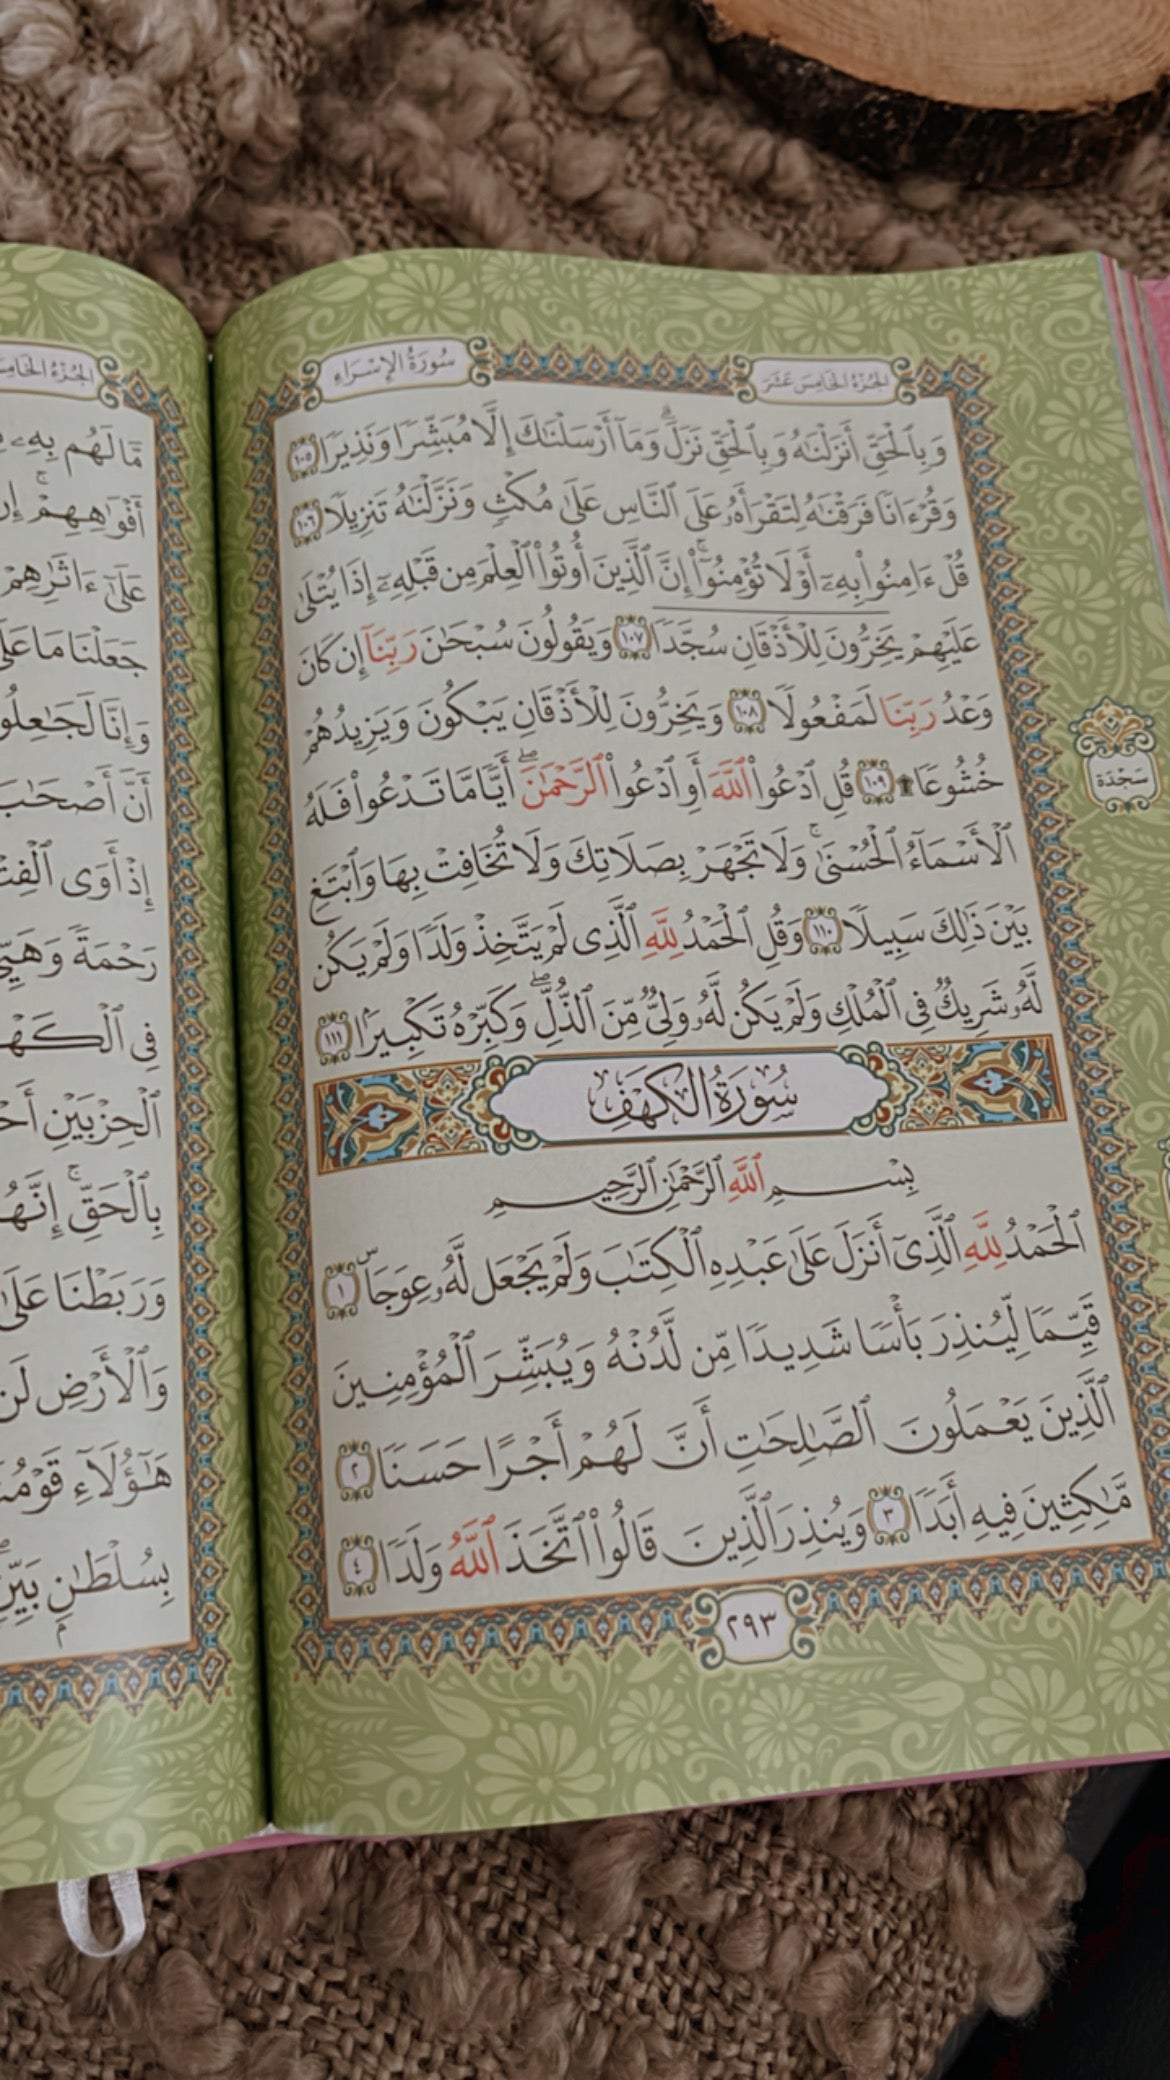 الجُزْءُ الخَامِسَ عَشَرَ
سُورَةُ الإِسْرَاءِ
وَبِٱلْحَقِّ أَنزَلْنَٰهُ وَبِٱلْحَقِّ نَزَلَۗ وَمَآ أَرْسَلْنَٰكَ إِلَّا مُبَشِّرًا وَنَذِيرًا ١٠٥
وَقُرْءَانًا فَرَقْنَٰهُ لِتَقْرَأَهُۥ عَلَى ٱلنَّاسِ عَلَىٰ مُكْثٍ وَنَزَّلْنَٰهُ تَنزِيلًا ١٠٦
قُلْ ءَامِنُوا۟ بِهِۦٓ أَوْ لَا تُؤْمِنُوٓا۟ۚ إِنَّ ٱلَّذِينَ أُوتُوا۟ ٱلْعِلْمَ مِن قَبْلِهِۦٓ إِذَا يُتْلَىٰ
عَلَيْهِمْ يَخِرُّونَ لِلْأَذْقَانِ سُجَّدًا ١٠٧ وَيَقُولُونَ سُبْحَٰنَ رَبِّنَآ إِن كَانَ
وَعْدُ رَبِّنَا لَمَفْعُولًا ١٠٨ وَيَخِرُّونَ لِلْأَذْقَانِ يَبْكُونَ وَيَزِيدُهُمْ
خُشُوعًا ۩ ١٠٩ قُلِ ٱدْعُوا۟ ٱللَّهَ أَوِ ٱدْعُوا۟ ٱلرَّحْمَٰنَۖ أَيًّا مَّا تَدْعُوا۟ فَلَهُ
ٱلْأَسْمَآءُ ٱلْحُسْنَىٰۚ وَلَا تَجْهَرْ بِصَلَاتِكَ وَلَا تُخَافِتْ بِهَا وَٱبْتَغِ
بَيْنَ ذَٰلِكَ سَبِيلًا ١١٠ وَقُلِ ٱلْحَمْدُ لِلَّهِ ٱلَّذِى لَمْ يَتَّخِذْ وَلَدًا وَلَمْ يَكُن
لَّهُۥ شَرِيكٌ فِى ٱلْمُلْكِ وَلَمْ يَكُن لَّهُۥ وَلِىٌّ مِّنَ ٱلذُّلِّۖ وَكَبِّرْهُ تَكْبِيرًۢا ١١١
سَجْدَة
سُورَةُ الكَهْفِ
بِسْمِ ٱللَّهِ ٱلرَّحْمَٰنِ ٱلرَّحِيمِ
ٱلْحَمْدُ لِلَّهِ ٱلَّذِىٓ أَنزَلَ عَلَىٰ عَبْدِهِ ٱلْكِتَٰبَ وَلَمْ يَجْعَل لَّهُۥ عِوَجَاۜ ١
قَيِّمًا لِّيُنذِرَ بَأْسًا شَدِيدًا مِّن لَّدُنْهُ وَيُبَشِّرَ ٱلْمُؤْمِنِينَ
ٱلَّذِينَ يَعْمَلُونَ ٱلصَّٰلِحَٰتِ أَنَّ لَهُمْ أَجْرًا حَسَنًا ٢
مَّٰكِثِينَ فِيهِ أَبَدًا ٣ وَيُنذِرَ ٱلَّذِينَ قَالُوا۟ ٱتَّخَذَ ٱللَّهُ وَلَدًا ٤
٢٩٣
الجُزْءُ
مَّا لَهُم بِهِۦ
أَفْوَٰهِهِمْۚ إِن
عَلَىٰٓ ءَاثَٰرِهِمْ
جَعَلْنَا مَا
وَإِنَّا لَجَٰعِلُو
أَنَّ أَصْحَٰبَ
إِذْ أَوَى
رَحْمَةً
فِى ٱلْكَهْ
ٱلْحِزْبَيْنِ
بِٱلْحَقِّۚ
وَرَبَطْنَا عَلَىٰ
وَٱلْأَرْضِ لَن
هَٰٓؤُلَآءِ قَوْمُ
بِسُلْطَٰنٍۭ بَيِّنٍ